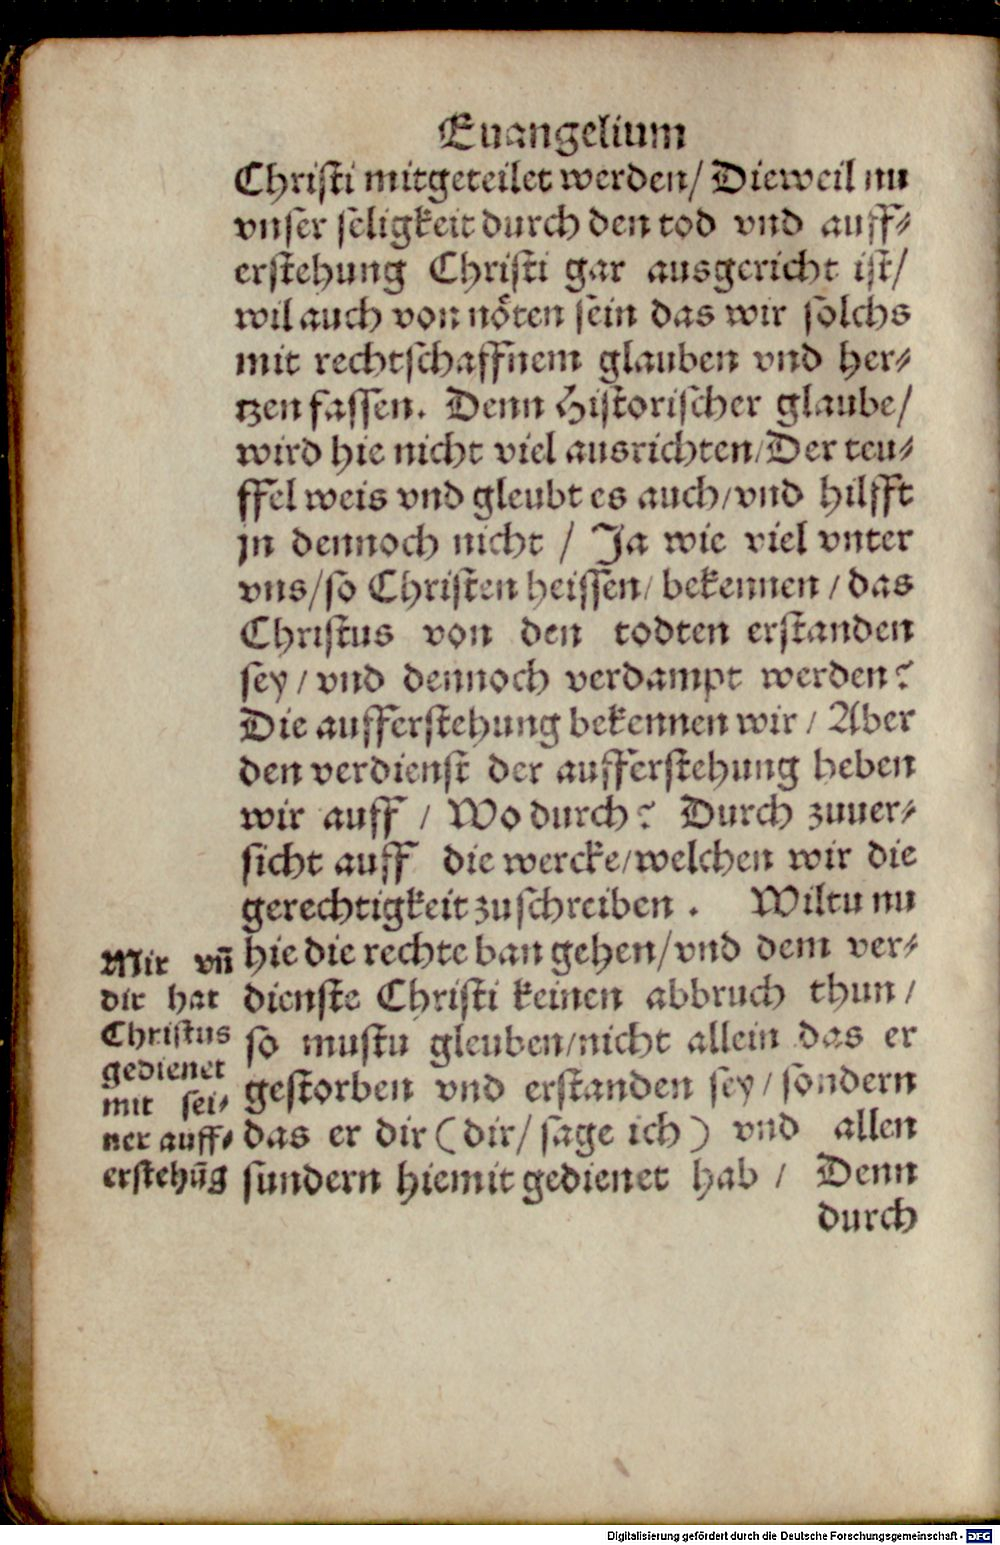 Euangelium
Christi mitgeteilet werden/ Dieweil nu
vnser seligkeit durch den tod vnd auff-
erstehung Christi gar ausgericht ist/
wil auch von nöten sein das wir solchs
mit rechtschaffnem glauben vnd her-
tzen fassen. Denn Historischer glaube/
wird hie nicht viel ausrichten/Der teu-
ffel weis vnd gleubt es auch/vnd hilfft
jn dennoch nicht / Ja wie viel vnter
vns/so Christen heissen/ bekennen / das
Christus von den todten erstanden
sey / vnd dennoch verdampt werden?
Die aufferstehung bekennen wir / Aber
den verdienst der aufferstehung heben
wir auff / Wo durch? Durch zuuer-
sicht auff die wercke/welchen wir die
gerechtigkeit zuschreiben . Wiltu nu
hie die rechte ban gehen/vnd dem ver-
dienste Christi keinen abbruch thun /
so mustu gleuben/nicht allein das er
gestorben vnd erstanden sey / sondern
das er dir (dir/ sage ich) vnd allen
sundern hiemit gedienet hab / Denn
durch
Mir vn̄
dir hat
Christus
gedienet
mit sei-
ner auff-
erstehūg
Digitalisierung gefördert durch die Deutsche Forschungsgemeinschaft - DFG